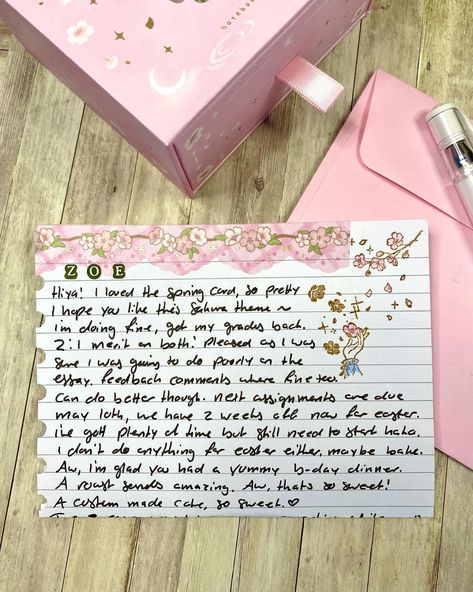 notebook
ZOE
Hiya! I loved the spring card, so pretty
I hope you like this Sakura theme ~
I'm doing fine, got my grades back.
2:1 merit on both! pleased as I was
sure I was going to do poorly on the
essay. feedback comments where fine too.
Can do better though. next assignments are due
may 10th, we have 2 weeks off now for easter.
i've gott plenty of time but still need to start haha.
I don't do anything for easter either, maybe bake.
Aw, I'm glad you had a yummy b-day dinner.
A roast sends amazing. Aw, thats so sweet!
A custom made cake, so sweet. ♡